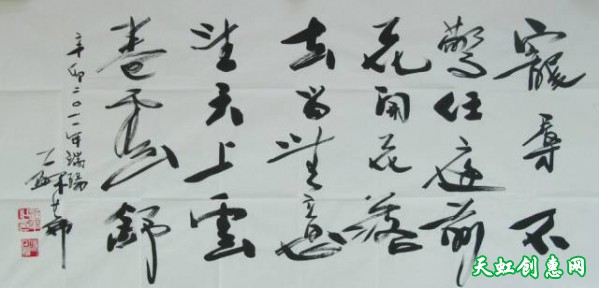 寵辱不
驚任庭前
花開花落
去留無意
望天上雲
卷雲舒
辛卯二〇一一年端陽
天虹创惠网